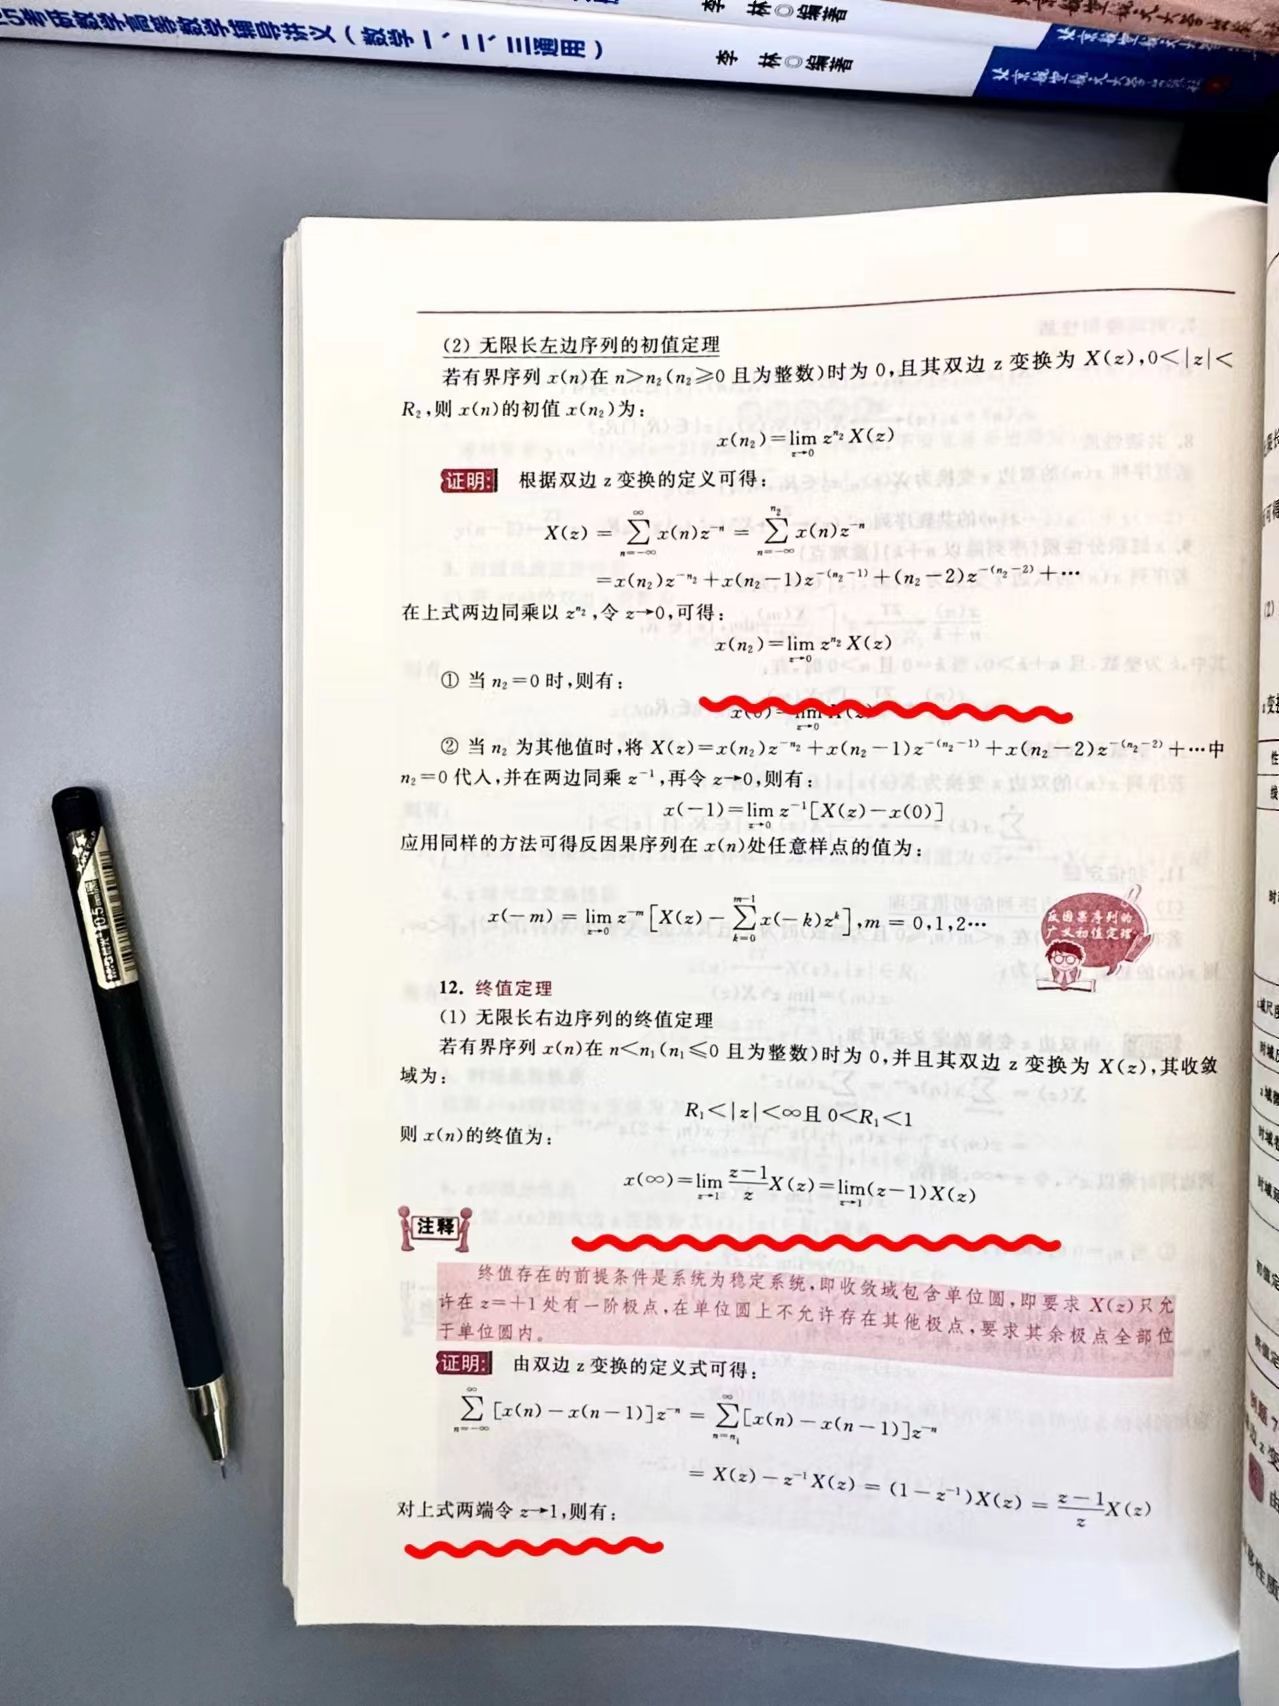 考研数学高等数学辅导讲义（数学一、二、三通用）
李 林◎编著
李 林◎编著
(2) 无限长左边序列的初值定理
若有界序列 x(n)在 n>n₂(n₂≥0 且为整数)时为 0,且其双边 z 变换为 X(z),0<|z|<
R₂,则 x(n)的初值 x(n₂)为:
x(n₂)=lim z^{n₂} X(z)
z→0
证明: 根据双边 z 变换的定义可得:
X(z) = ∑_{n=-∞}^{∞} x(n)z^{-n} = ∑_{n=-∞}^{n₂} x(n)z^{-n}
=x(n₂)z^{-n₂}+x(n₂-1)z^{-(n₂-1)}+(n₂-2)z^{-(n₂-2)}+…
在上式两边同乘以 z^{n₂},令 z→0,可得:
x(n₂)=lim z^{n₂} X(z)
z→0
① 当 n₂=0 时,则有:
x(0)=lim X(z)
z→0
② 当 n₂ 为其他值时,将 X(z)=x(n₂)z^{-n₂}+x(n₂-1)z^{-(n₂-1)}+x(n₂-2)z^{-(n₂-2)}+…中
n₂=0 代入,并在两边同乘 z^{-1},再令 z→0,则有:
x(-1)=lim z^{-1}[X(z)-x(0)]
z→0
应用同样的方法可得反因果序列在 x(n)处任意样点的值为:
x(-m) = lim_{z→0} z^{-m}[X(z)-∑_{k=0}^{m-1} x(-k)z^{k}],m = 0,1,2…
反因果序列的
广义初值定理
12. 终值定理
(1) 无限长右边序列的终值定理
若有界序列 x(n)在 n<n₁(n₁≤0 且为整数)时为 0,并且其双边 z 变换为 X(z),其收敛
域为:
R₁<|z|<∞且 0<R₁<1
则 x(n)的终值为:
x(∞)=lim_{z→1} \frac{z-1}{z}X(z)=lim_{z→1}(z-1)X(z)
注释
终值存在的前提条件是系统为稳定系统,即收敛域包含单位圆,即要求 X(z)只允
许在 z=+1 处有一阶极点,在单位圆上不允许存在其他极点,要求其余极点全部位
于单位圆内。
证明: 由双边 z 变换的定义式可得:
∑_{n=-∞}^{∞} [x(n)-x(n-1)]z^{-n} = ∑_{n=n₁}^{∞}[x(n)-x(n-1)]z^{-n}
= X(z)-z^{-1}X(z) = (1-z^{-1})X(z) = \frac{z-1}{z}X(z)
对上式两端令 z→1,则有: